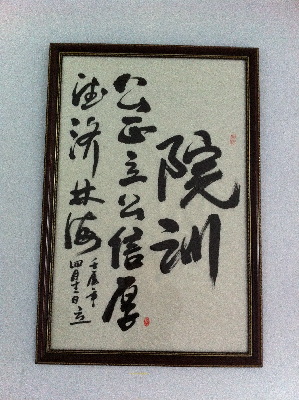 院训
公正立公信厚
德济林海
壬辰年
四月日立